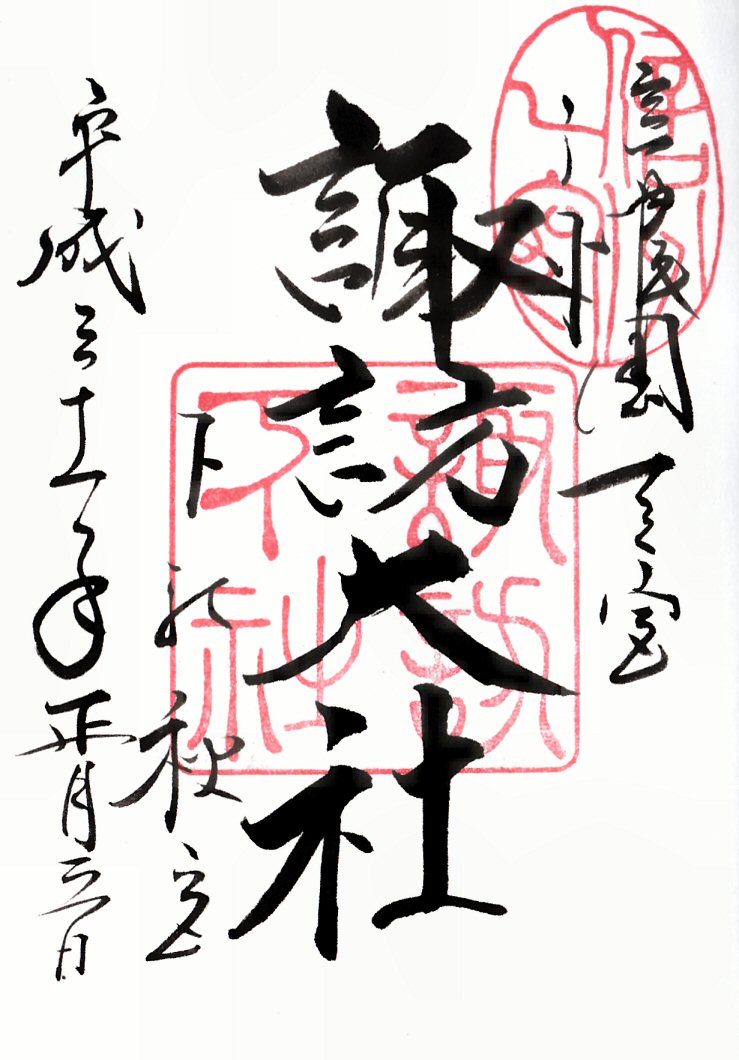 信濃國一宮
諏訪大社
下社秋宮
平成三十一年正月三日